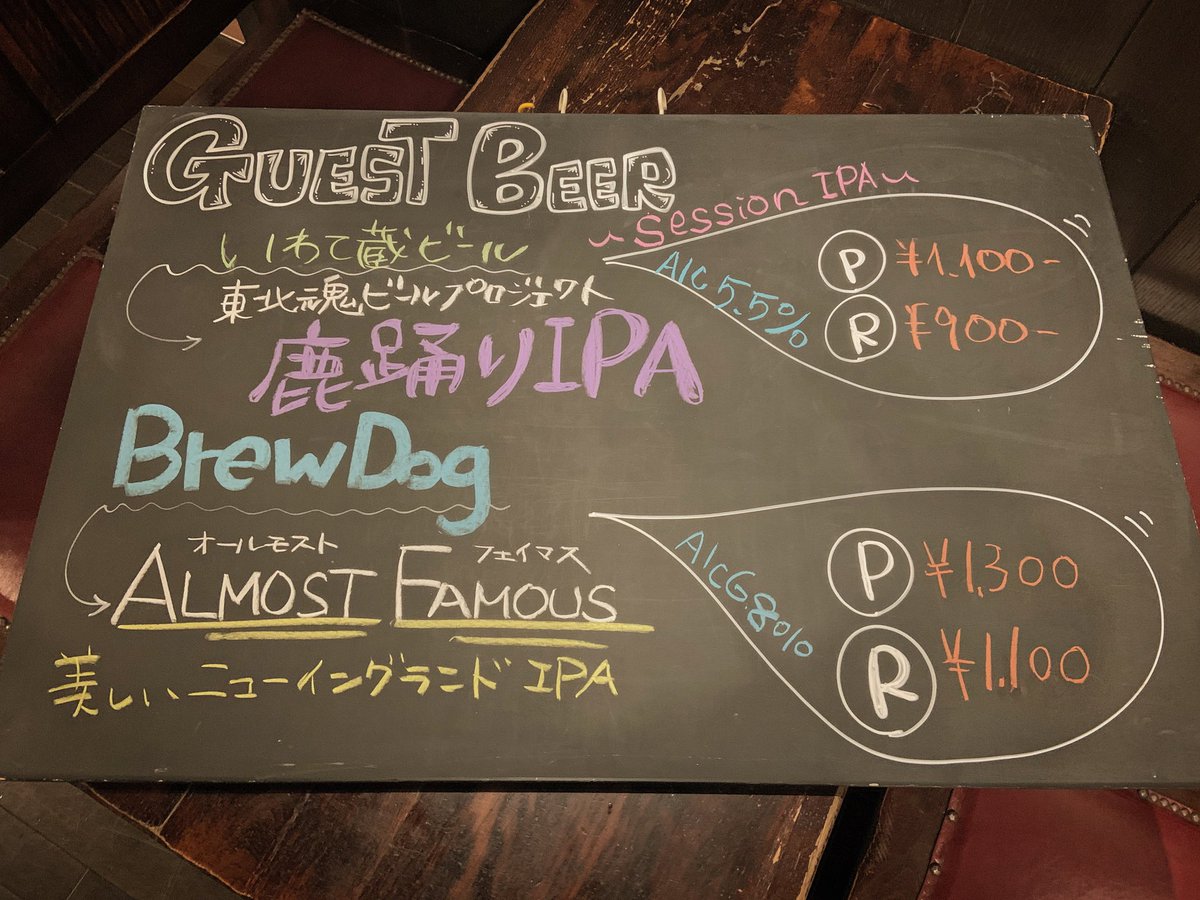 GUEST BEER
いわて蔵ビール
東北魂ビールプロジェクト
鹿踊りIPA
Session IPA
Alc 5.5%
P ¥1,100-
R ¥900-
BrewDog
オールモスト フェイマス
ALMOST FAMOUS
美しいニューイングランドIPA
Alc6.8%
P ¥1,300
R ¥1,100